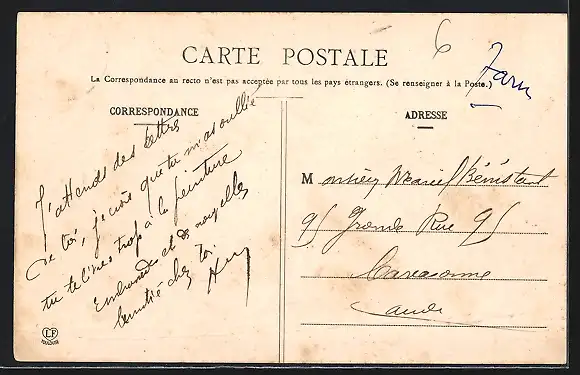 6
Tarn
CARTE POSTALE
La Correspondance au recto n'est pas acceptée par tous les pays étrangers. (Se renseigner à la Poste.)
CORRESPONDANCE
J'attends des lettres
de toi, je crois que tu m'as oublié
tu te livres trop à la peinture
Embrassades et de nouvelles
amitié chez toi.
ADRESSE
Monsieur Marcel Bénistant
95 Grande Rue 95
Carcasonne
Aude
LF